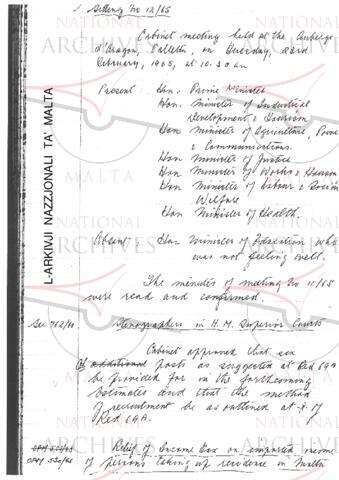 Sitting No 12/65
Cabinet meeting held at the Auberge
d'Aragon, Valletta, on Tuesday, 23rd
February, 1965, at 10.30 am
Present: Hon. Prime Minister
Hon. Minister of Industrial
Development & Tourism
Hon Minister of Agriculture, Power
& Communications.
Hon Minister of Justice
Hon Minister of Works & Housing
Hon Minister of Labour & Social
Welfare
Hon Minister of Health.
Absent: Hon Minister of Education, who
was not feeling well.
The minutes of meeting No 11/65
were read and confirmed.
See 762/60 Stenographers in H.M. Superior Courts
Cabinet approved that six
additional posts as suggested at Red 69A
be provided for in the forthcoming
Estimates and that the method
of recruitment be as outlined at X of
Red 69A.
Relief of Income Tax on imported income
OPM 530/62 of persons taking up residence in Malta
L-ARKIVJI NAZZJONALI TA' MALTA
NATIONAL
ARCHIVES
MALTA
NATIONAL
ARCHIVES
MALTA
NATIONAL
ARCHIVES